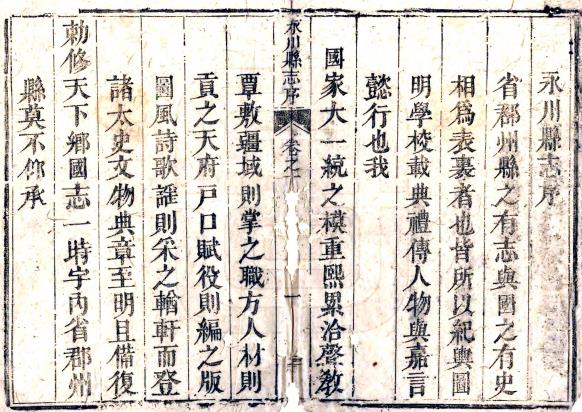 永川縣志序
省郡州縣之有志與國之有史
相爲表裏者也皆所以紀輿圖
明學校載典禮傳人物與嘉言
懿行也我
國家大一統之模重熙累洽聲教
永川縣志序
卷之一
一
覃敷疆域則掌之職方人材則
貢之天府戸口賦役則編之版
圖風詩歌謡則采之輶軒而登
諸太史文物典章至明且備復
勅修天下鄉國志一時宇內省郡州
縣莫不仰承